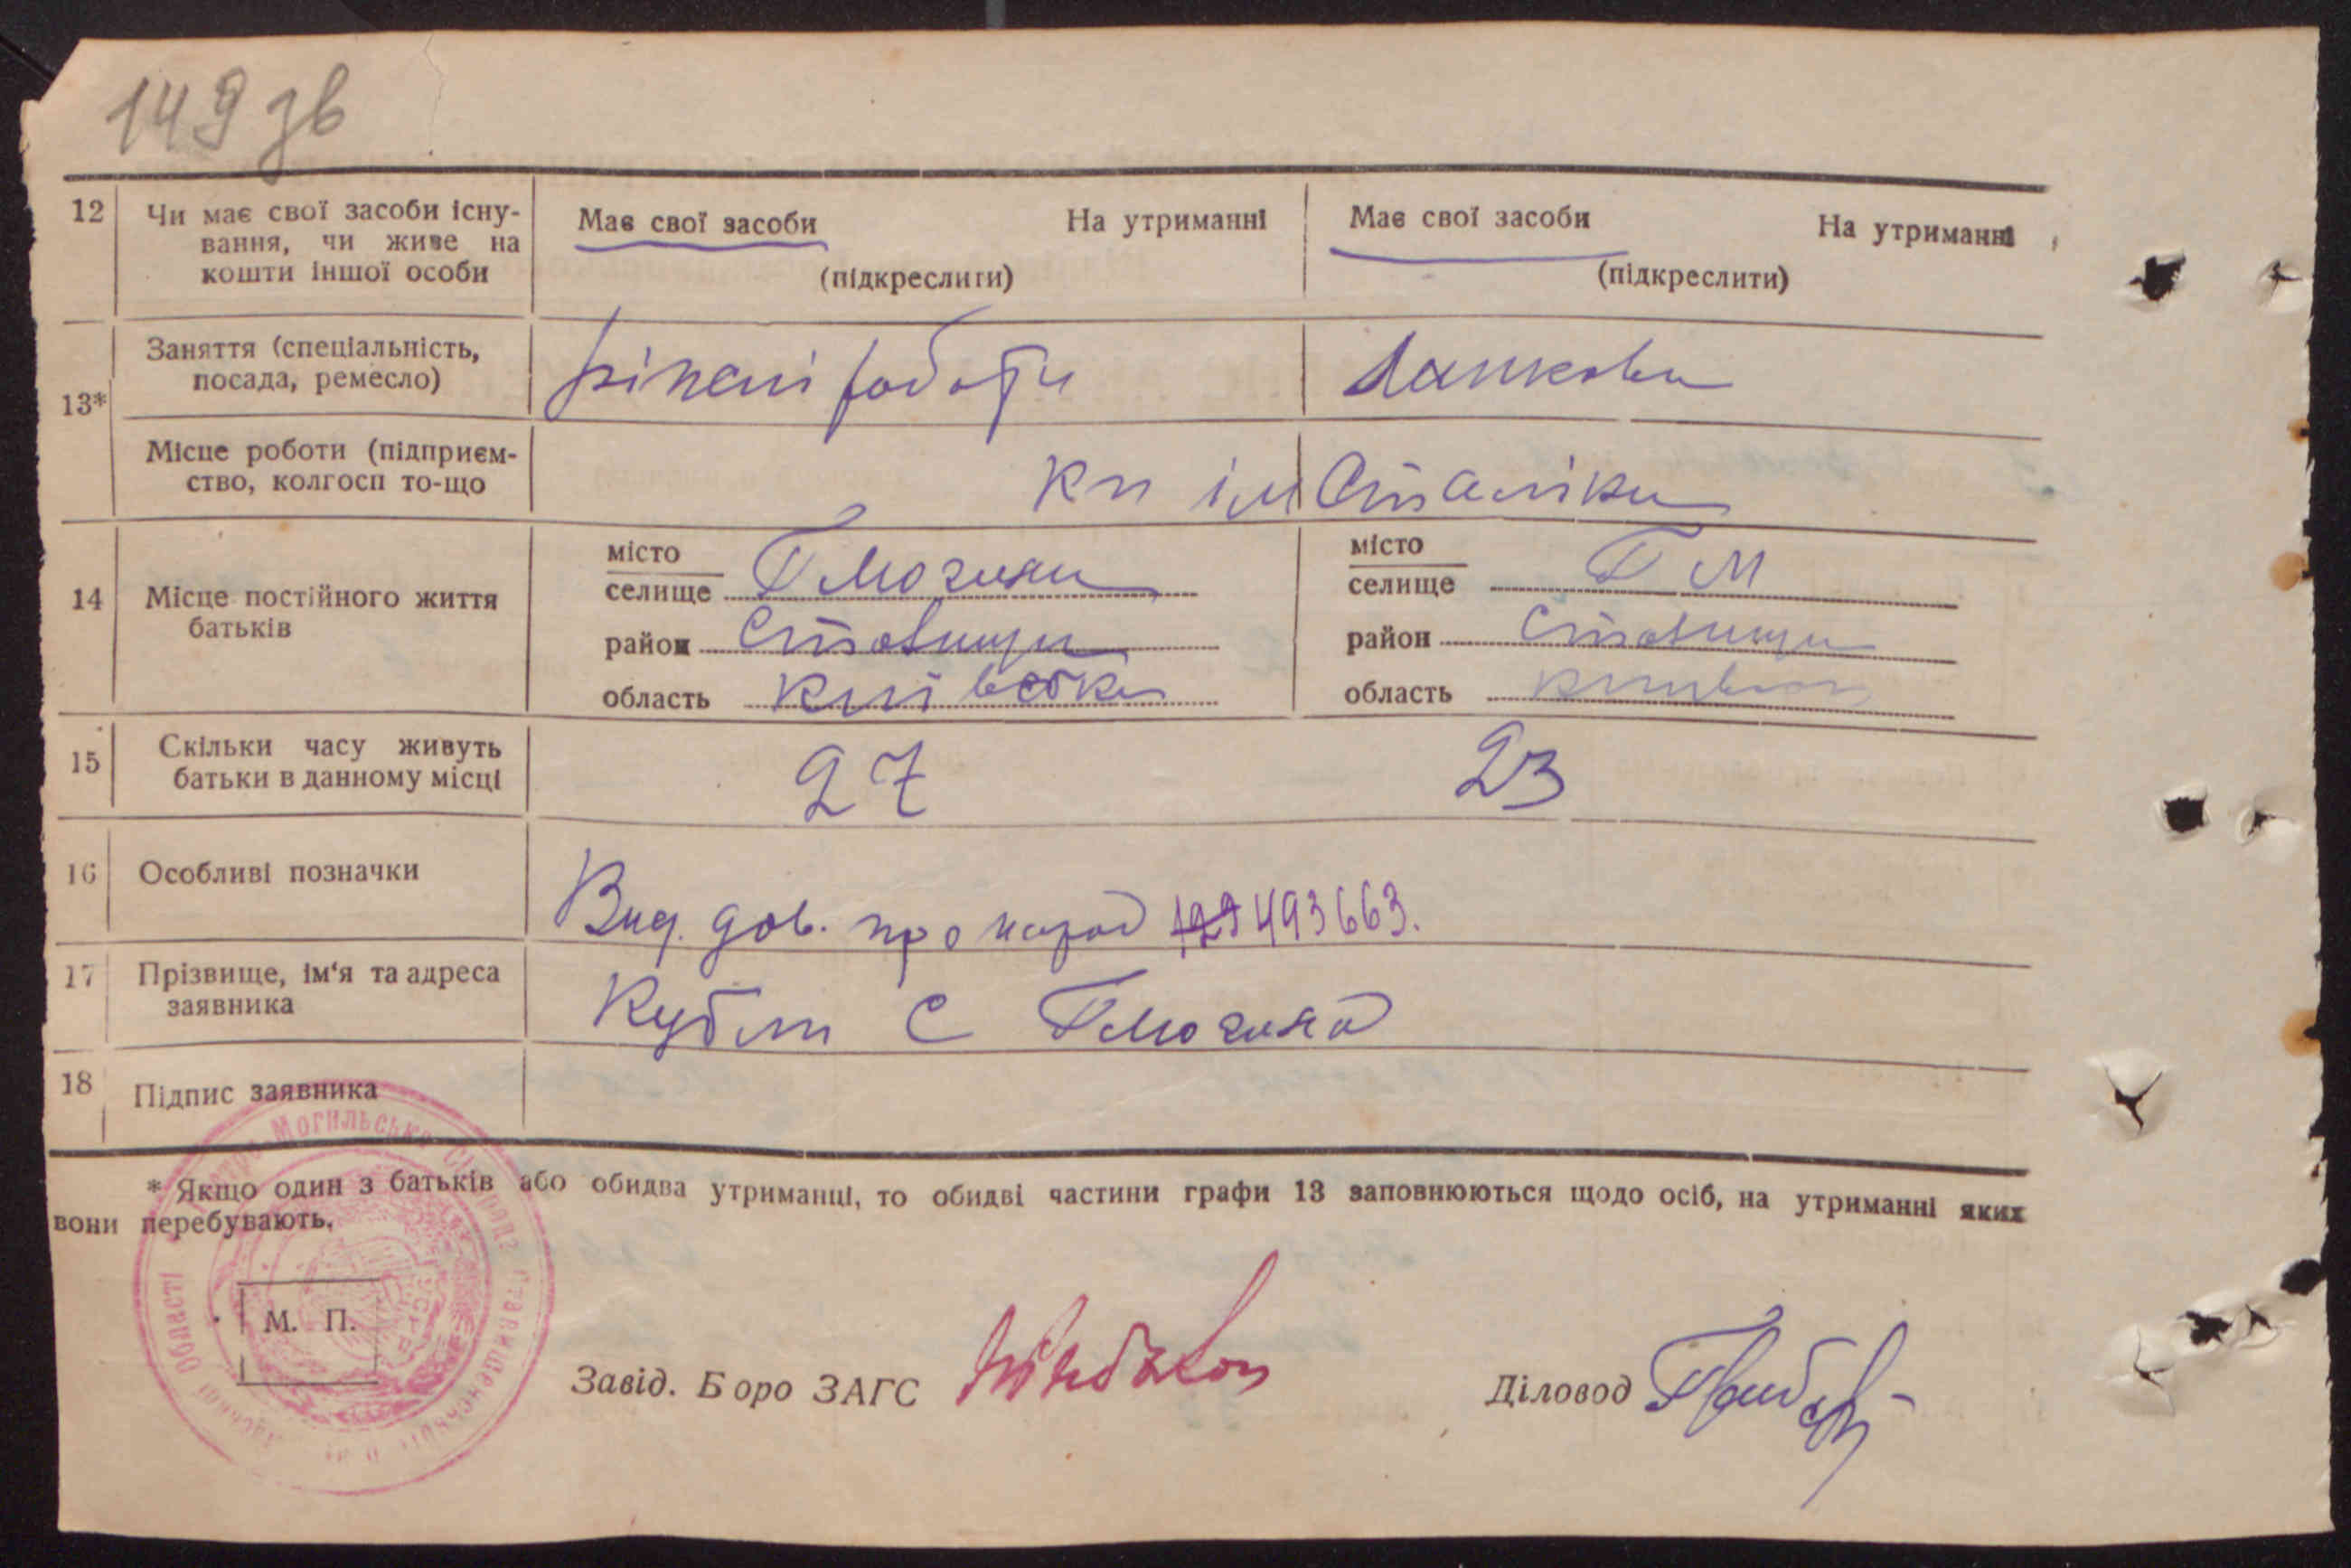 149 зв
12 Чи має свої засоби існу-
вання, чи живе на
кошти іншої особи
Має свої засоби На утриманні
(підкреслити)
Має свої засоби На утриманні
(підкреслити)
13*
Заняття (спеціальність,
посада, ремесло)
різні роботи
Ланкова
Місце роботи (підприєм-
ство, колгосп то-що
кп ім Сталіна
14 Місце постійного життя
батьків
місто
селище
район Ставищи
область Київська
місто
селище Г М
район Ставищи
область
15 Скільки часу живуть
батьки в данному місці
27 23
16 Особливі позначки
Вид. дов. про народ 493663.
17 Прізвище, ім‘я та адреса
заявника
С
18 Підпис заявника
* Якщо один з батьків або обидва утриманці, то обидві частини графи 13 заповнюються щодо осіб, на утриманні яких
вони перебувають.
М. П.
Завід. Бюро ЗАГС
Діловод